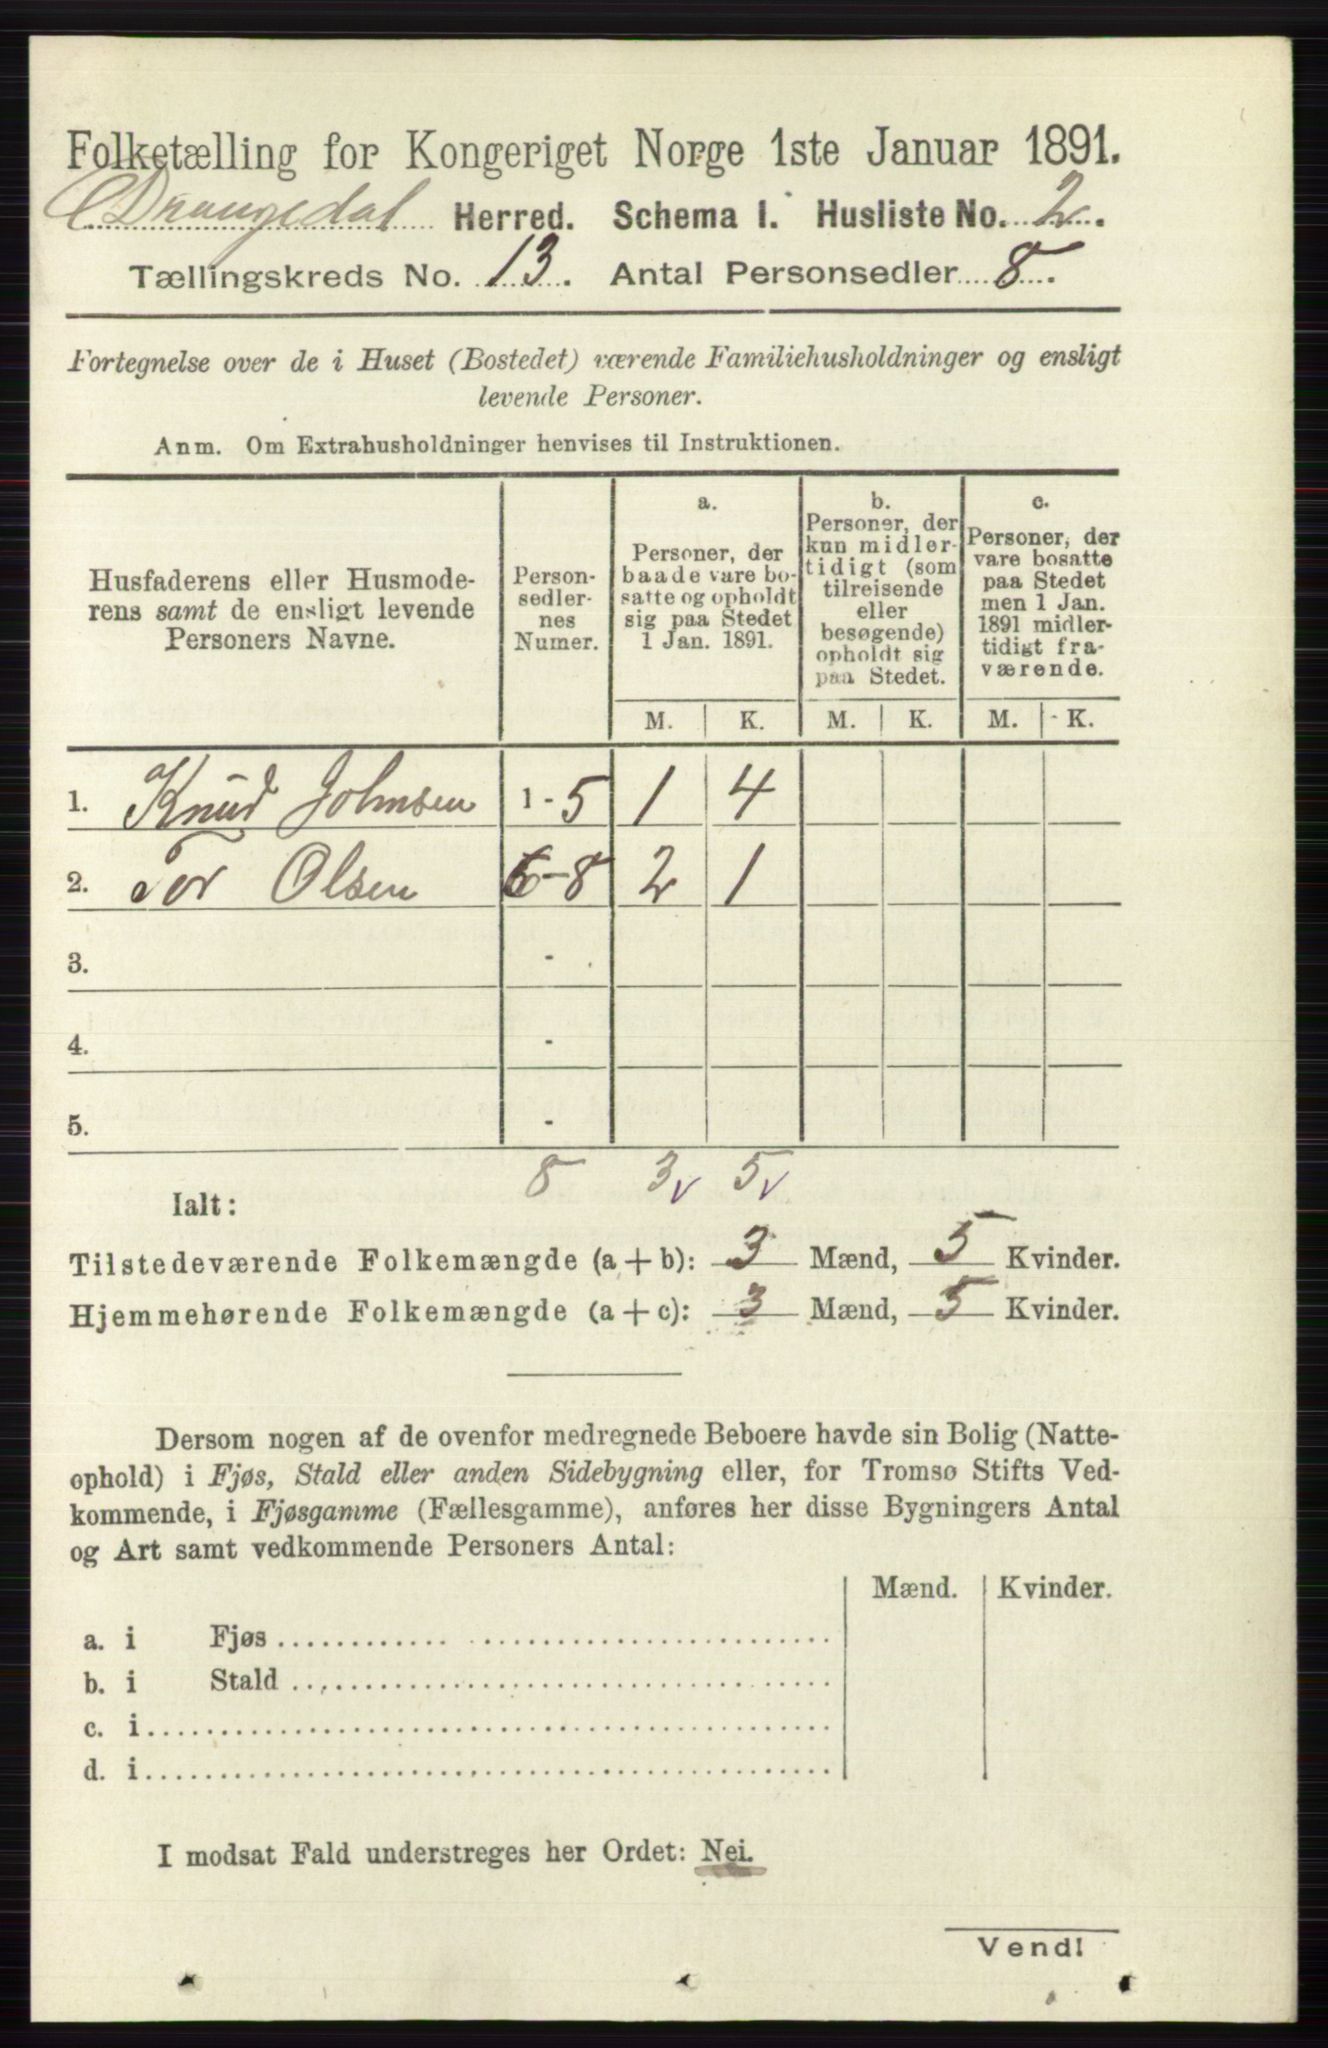 Folketælling for Kongeriget Norge 1ste Januar 1891.
Drangedal Herred. Schema I. Husliste No. 2.
Tællingskreds No. 13. Antal Personsedler 8.
Fortegnelse over de i Huset (Bostedet) værende Familiehusholdninger og ensligt
levende Personer.
Anm. Om Extrahusholdninger henvises til Instruktionen.
Husfaderens eller Husmode-
rens samt de ensligt levende
Personers Navne.
Person-
sedler-
nes
Numer.
a.
Personer, der
baade vare bo-
satte og opholdt
sig paa Stedet
1 Jan. 1891.
b.
Personer, der
kun midler-
tidigt (som
tilreisende
eller
besøgende)
opholdt sig
paa Stedet.
c.
Personer, der
vare bosatte
paa Stedet
men 1 Jan.
1891 midler-
tidigt fra-
værende.
M. K. M. K. M. K.
1. Knud Johnsen 1-5 1 4
2. Tor Olsen 6-8 2 1
3. -
4. -
5. -
8 3 v 5 v
Ialt:
Tilstedeværende Folkemængde (a + b): 3 Mænd, 5 Kvinder.
Hjemmehørende Folkemængde (a + c): 3 Mænd, 5 Kvinder.
Dersom nogen af de ovenfor medregnede Beboere havde sin Bolig (Natte-
ophold) i Fjøs, Stald eller anden Sidebygning eller, for Tromsø Stifts Ved-
kommende, i Fjøsgamme (Fællesgamme), anføres her disse Bygningers Antal
og Art samt vedkommende Personers Antal:
Mænd. Kvinder.
a. i Fjøs
b. i Stald
c. i
d. i
I modsat Fald understreges her Ordet: Nei.
Vend!